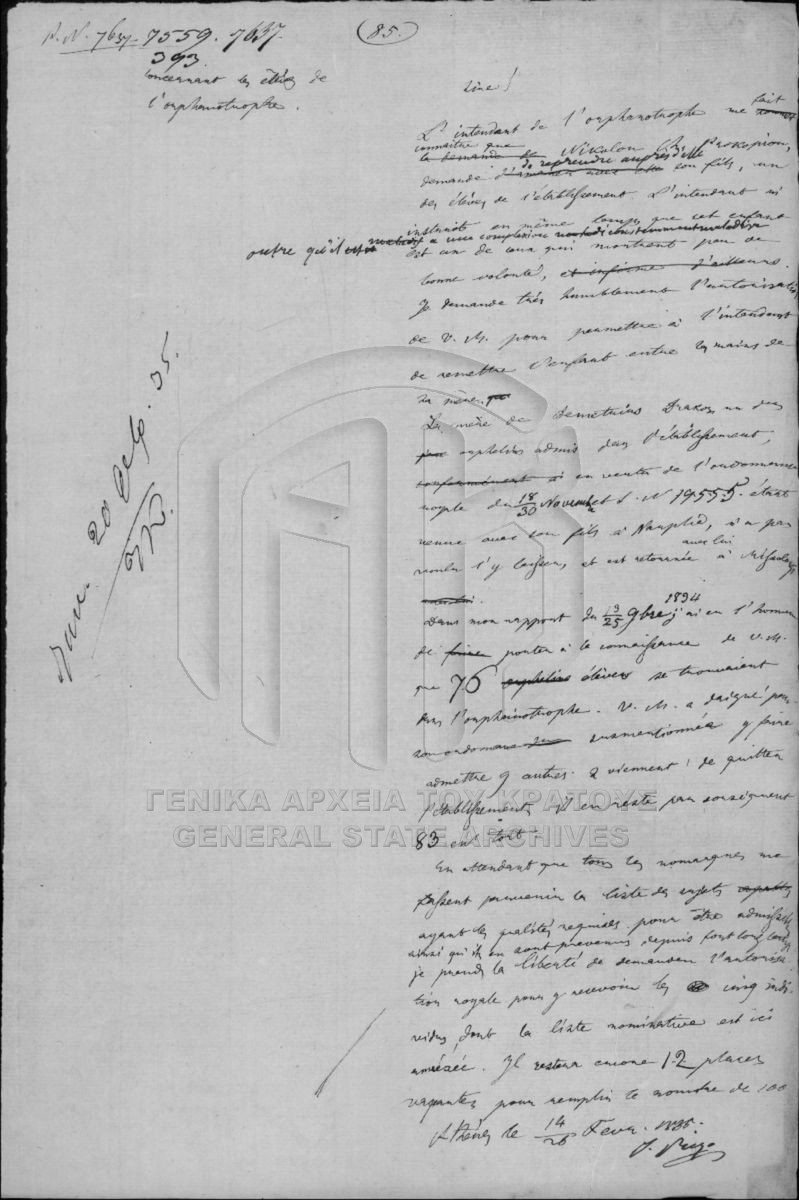 P. N. 7637. 7559. 7637.
393.
(85.)
Concernant les élèves de
l'orphanotrophe.
Sire!
L'intendant de l'orphanotrophe me fait
connaître que la demande de Nikolou Prokopiou,
demande de reprendre auprès d'elle son fils, un
des élèves de l'établissement. L'intendant m'
instruit en même temps que cet enfant
outre qu'il a une complexion
est un de ceux qui montrent peu de
bonne volonté, et informe d'ailleurs.
Je demande très humblement l'autorisation
de V. M. pour permettre à l'intendant
de remettre l'enfant entre les mains de
sa mère.
La mère de Demetrius Drakos un des
orphelins admis dans l'établissement,
conformément à en vertu de l'ordonnance
royale du 18/30 Novembre S. N 19555. étant
venue avec son fils à Nauplie, n'a pas
voulu l'y laisser, et est retournée avec lui à Missolonghi
Dans mon rapport du 13/25 9bre 1834 j'ai eu l'honneur
de faire porter à la connaissance de V. M.
que 76 orphelins élèves se trouvaient
dans l'orphanotrophe. V. M. a daigné par
son ordonnance susmentionnée y faire
admettre 9 autres. 2 viennent de quitter
l'établissement, il en reste par conséquent
83 en tout.
En attendant que tous les nomarques me
fassent parvenir la liste des sujets
ayant les qualités requises pour être admissibles
ainsi qu'ils en sont prevenus depuis fort longtemps
je prends la liberté de demander l'autorisa-
tion royale pour y recevoir les cinq indi-
vidus, dont la liste nominative est ici
annexée. Il restera encore 12 places
vacantes pour remplir le nombre de 100
Athènes le 14/26 Fevr. 1835.
20 35.
ΓΕΝΙΚΑ ΑΡΧΕΙΑ ΤΟΥ ΚΡΑΤΟΥΣ
GENERAL STATE ARCHIVES